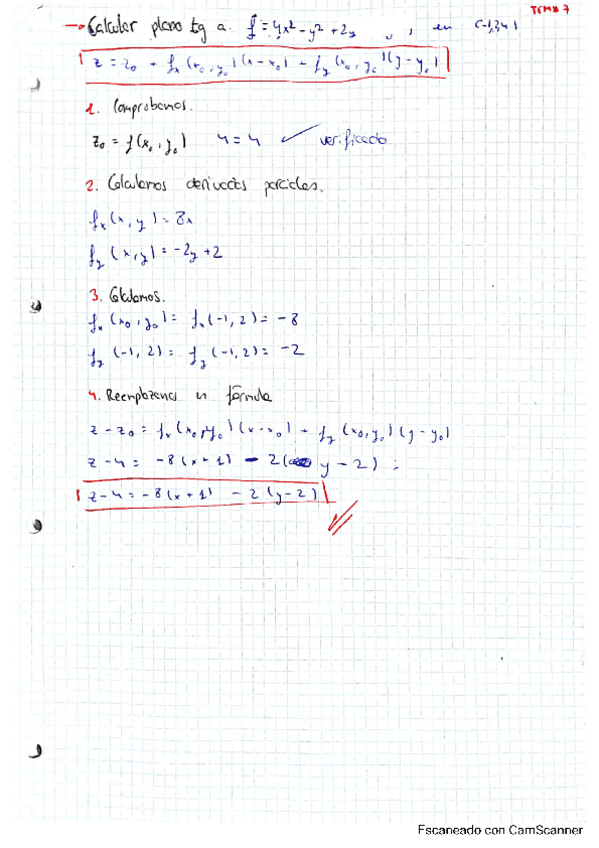 TEMA 7
→ Calcular plano tg a. f = 4x² - y² + 2y , en (-1,2,4)
z = z₀ + fₓ(x₀, y₀)(x-x₀) + f_y(x₀, y₀)(y-y₀)
1. Comprobamos.
z₀ = f(x₀, y₀) 4 = 4 ✓ verificado
2. Calculamos derivadas parciales.
fₓ(x, y) = 8x
f_y(x, y) = -2y + 2
3.
fₓ(x₀, y₀) = fₓ(-1, 2) = -8
f_y(-1, 2) = f_y(-1, 2) = -2
4. Reemplazamos en fórmula
z - z₀ = fₓ(x₀, y₀)(x-x₀) + f_y(x₀, y₀)(y-y₀)
z - 4 = -8(x+1) - 2(y-2) ;
z - 4 = -8(x+1) - 2(y-2)
Escaneado con CamScanner